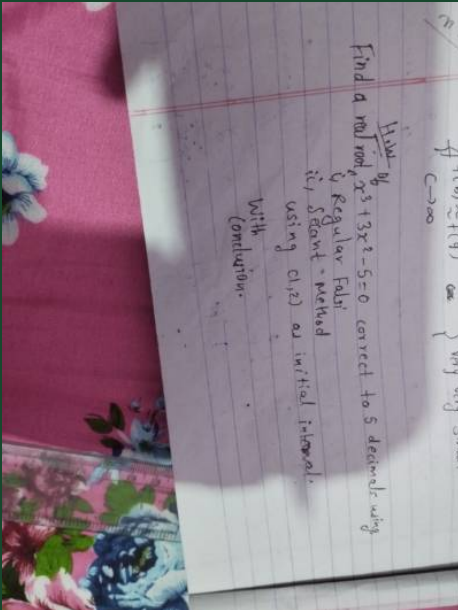 c→∞
H.W
Find a real root of x³+3x²-5=0 correct to 5 decimals using
i, Regular Falsi
ii, Secant - Method
using (1,2) as initial interval.
With
Conclusion.